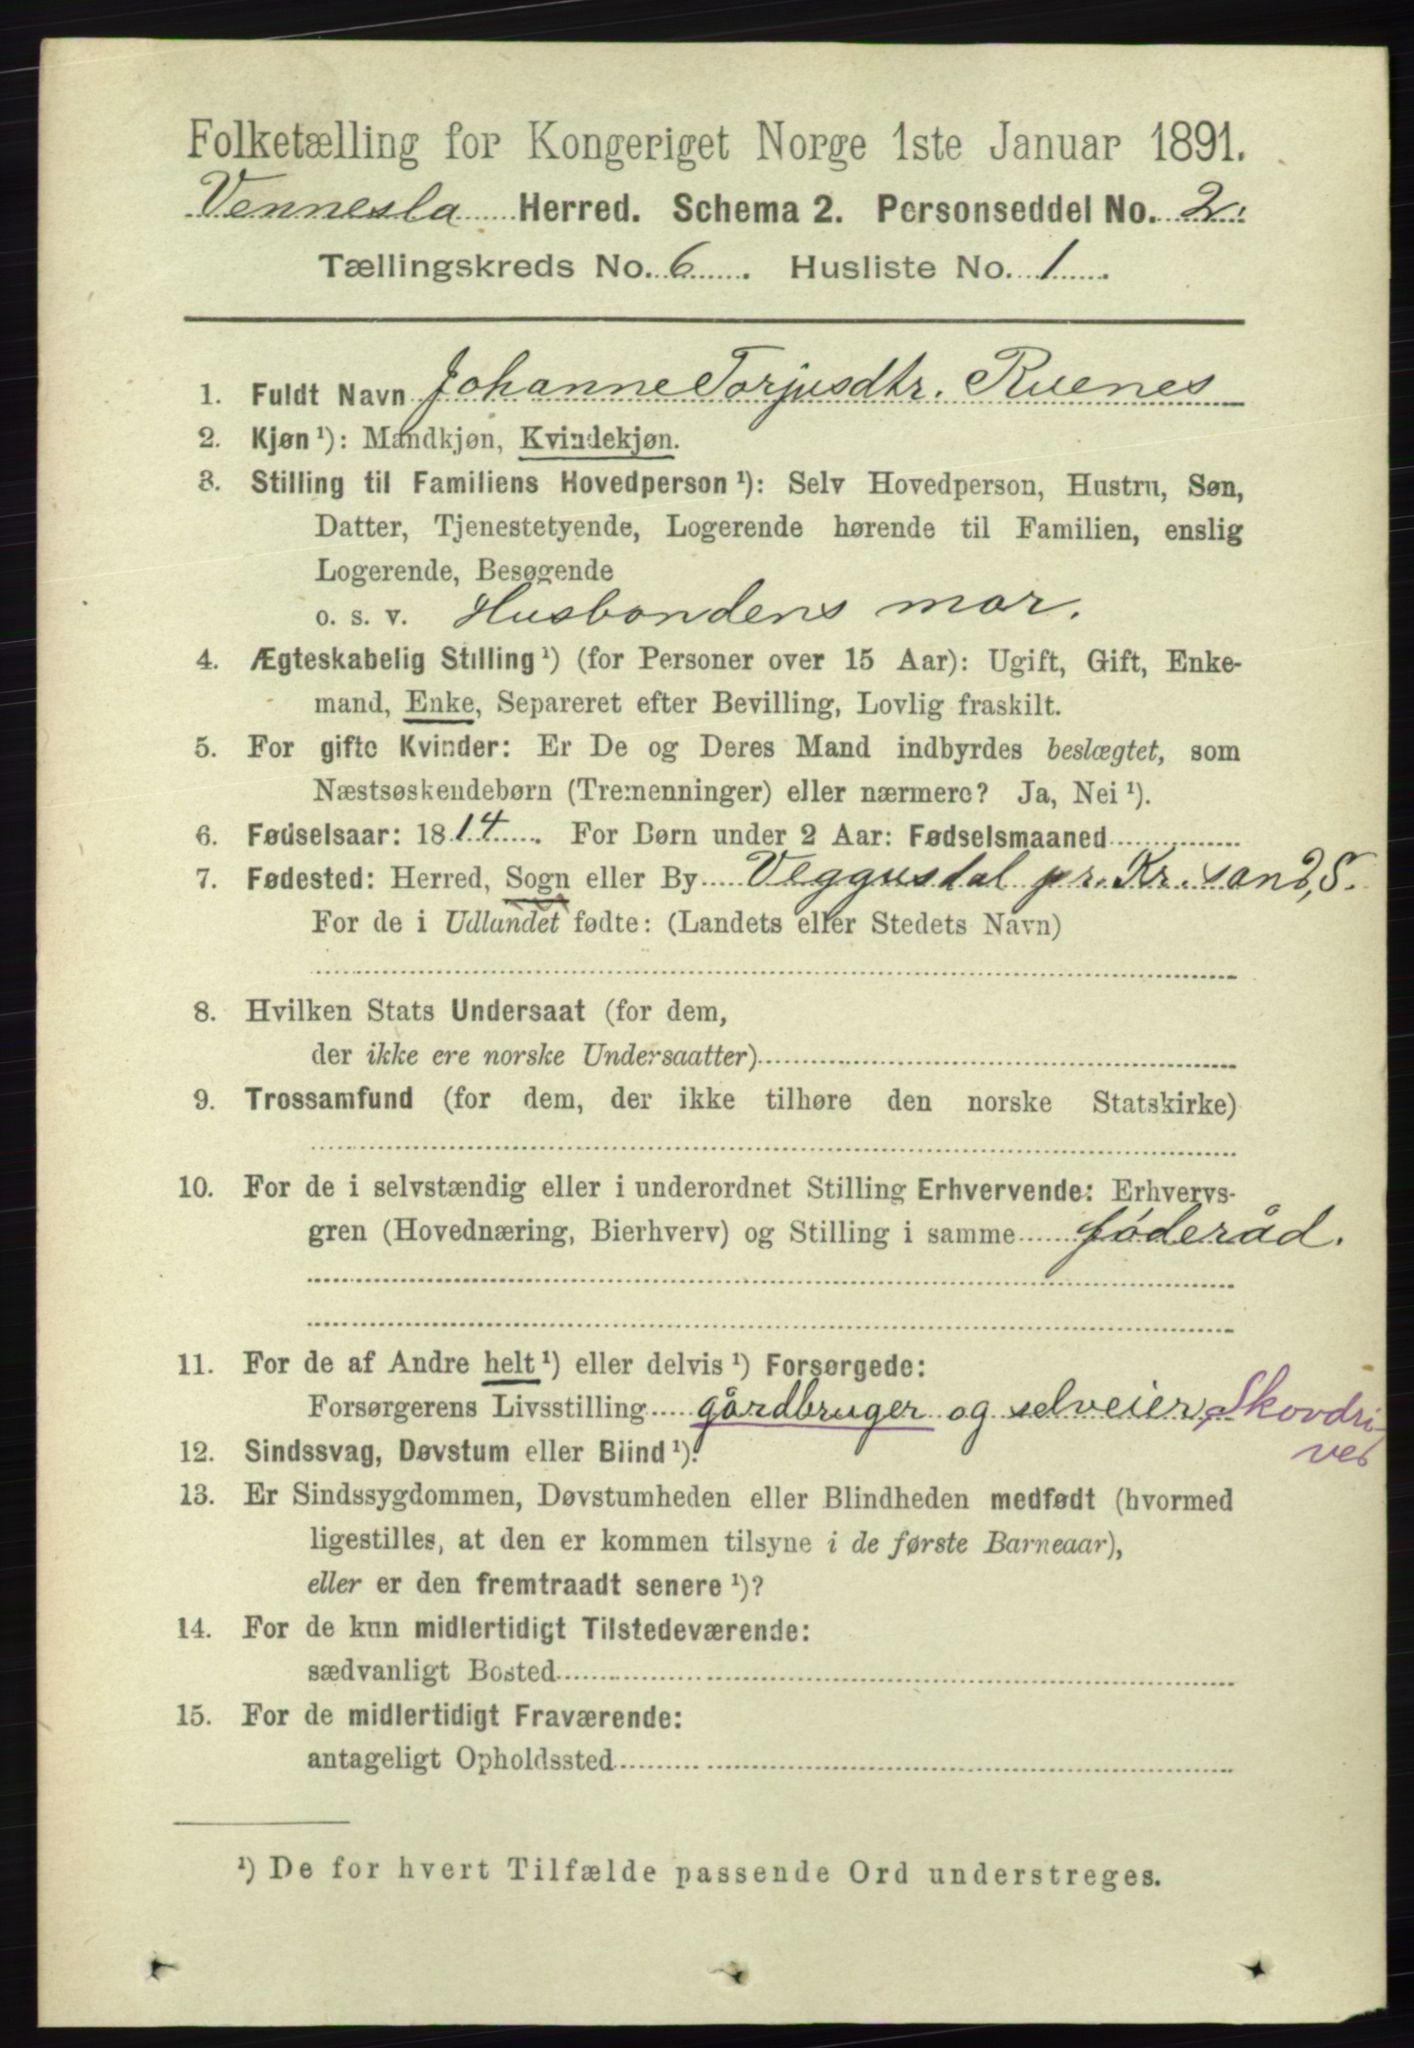 Folketælling for Kongeriget Norge 1ste Januar 1891.
Vennesla Herred. Schema 2. Personseddel No. 2.
Tællingskreds No. 6. Husliste No. 1.
1. Fuldt Navn Johanne Torjusdtr. Ruenes
2. Kjøn¹): Mandkjøn, Kvindekjøn.
3. Stilling til Familiens Hovedperson¹): Selv Hovedperson, Hustru, Søn,
Datter, Tjenestetyende, Logerende hørende til Familien, enslig
Logerende, Besøgende
o. s. v. Husbondens mor.
4. Ægteskabelig Stilling¹) (for Personer over 15 Aar): Ugift, Gift, Enke-
mand, Enke, Separeret efter Bevilling, Lovlig fraskilt.
5. For gifte Kvinder: Er De og Deres Mand indbyrdes beslægtet, som
Næstsøskendebørn (Tremenninger) eller nærmere? Ja, Nei¹).
6. Fødselsaar: 1814. For Børn under 2 Aar: Fødselsmaaned
7. Fødested: Herred, Sogn eller By Veggusdal pr. Kr.sand, S.
For de i Udlandet fødte: (Landets eller Stedets Navn)
8. Hvilken Stats Undersaat (for dem,
der ikke ere norske Undersaatter)
9. Trossamfund (for dem, der ikke tilhøre den norske Statskirke)
10. For de i selvstændig eller i underordnet Stilling Erhvervende: Erhvervs-
gren (Hovednæring, Bierhverv) og Stilling i samme føderåd.
11. For de af Andre helt¹) eller delvis¹) Forsørgede:
Forsørgerens Livsstilling gårdbruger og selveier, Skovdri-
ver
12. Sindssvag, Døvstum eller Blind¹).
13. Er Sindssygdommen, Døvstumheden eller Blindheden medfødt (hvormed
ligestilles, at den er kommen tilsyne i de første Barneaar),
eller er den fremtraadt senere¹)?
14. For de kun midlertidigt Tilstedeværende:
sædvanligt Bosted
15. For de midlertidigt Fraværende:
antageligt Opholdssted
¹) De for hvert Tilfælde passende Ord understreges.